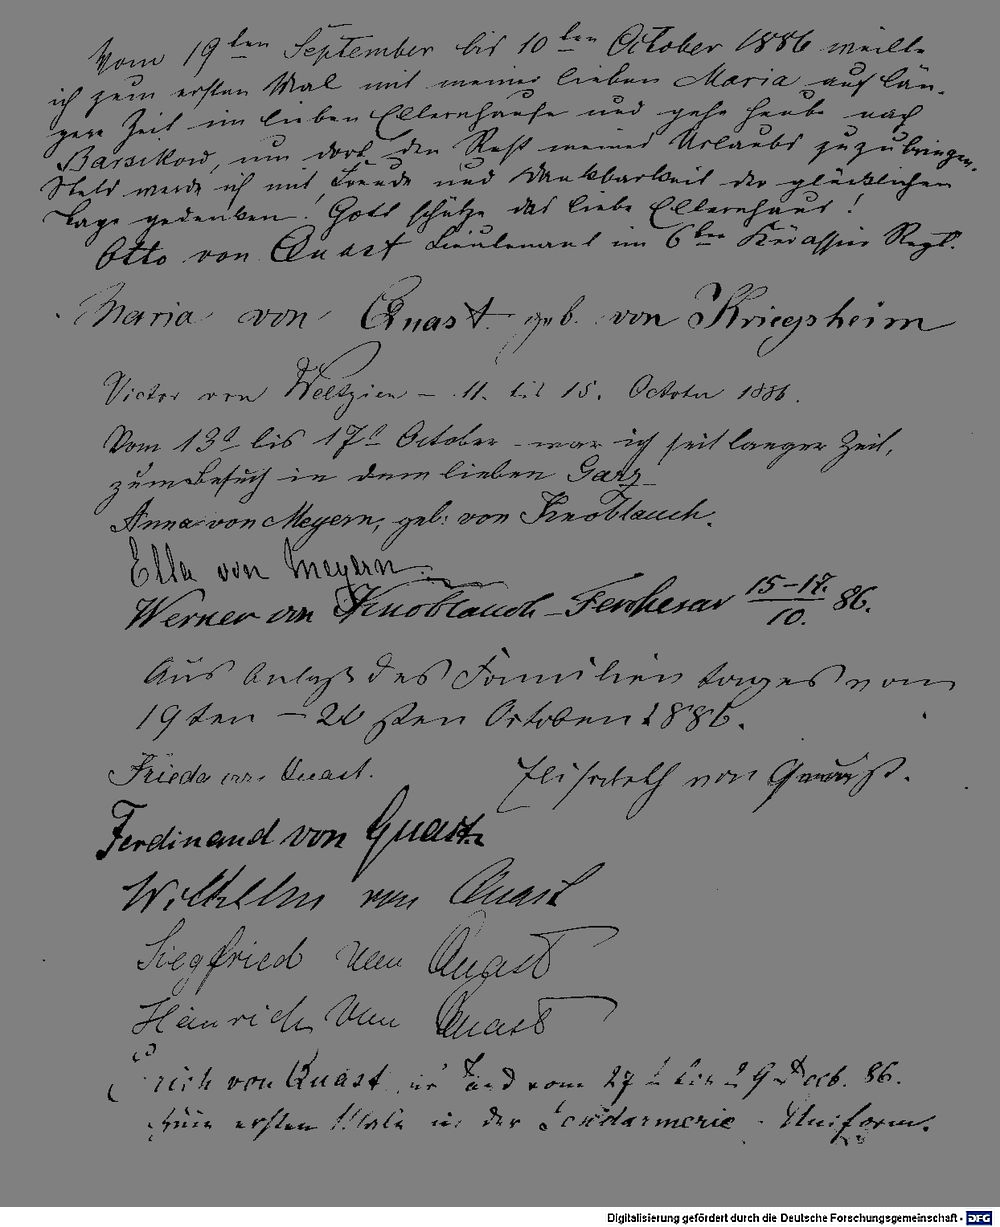 Vom 19ten September bis 10ten October 1886 weilte
ich zum ersten Mal mit meiner lieben Maria auf län-
gere Zeit im lieben Elternhause und gehe heute nach
Barsikow, um dort den Rest meines Urlaubs zuzubringen.
Stets werde ich mit Freude und Dankbarkeit der glücklichen
Tage gedenken! Gott schütze das liebe Elternhaus!
Otto von Quast Lieutenant im 6ten Kürassier Regt.
Maria von Quast geb. von Kriegsheim
Victor von Weltzien – 11. bis 15. October 1886.
Vom 13t bis 17t October war ich seit langer Zeit,
zum Besuch in dem lieben Garz
Anna von Meyern, geb: von Knoblauch.
Ella von Meyern.
Werner von Knoblauch - Ferchesar 15–17./10. 86.
Aus Anlaß des Familientages vom
19ten – 20sten October 1886.
Frieda von Quast. Elisabeth von Quast.
Ferdinand von Quast.
Wilhelm von Quast
Siegfried von Quast
Heinrich von Quast
Erich von Quast vom 27t bis 29t Octb. 86.
ersten Male in der Gendarmerie - Uniform.
Digitalisierung gefördert durch die Deutsche Forschungsgemeinschaft - DFG